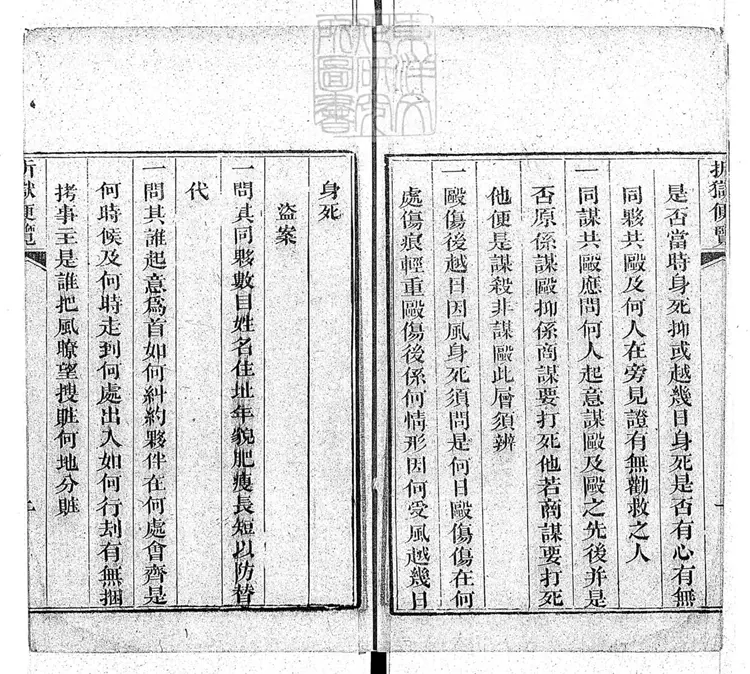 折獄便覽
是否當時身死抑或越幾日身死是否有心有無
同夥共毆及何人在旁見證有無勸救之人
一同謀共毆應問何人起意謀毆及毆之先後并是
否原係謀毆抑係商謀要打死他若商謀要打死
他便是謀殺非謀毆此層須辨
一毆傷後越日因風身死須問是何日毆傷傷在何
處傷痕輕重毆傷後係何情形因何受風越幾日
身死
盜案
一問其同夥數目姓名住址年貌肥瘦長短以防替
代
一問其誰起意爲首如何糾約夥伴在何處會齊是
何時候及何時走到何處出入如何行刦有無捆
拷事主是誰把風瞭望搜贓何地分贓
折獄便覽